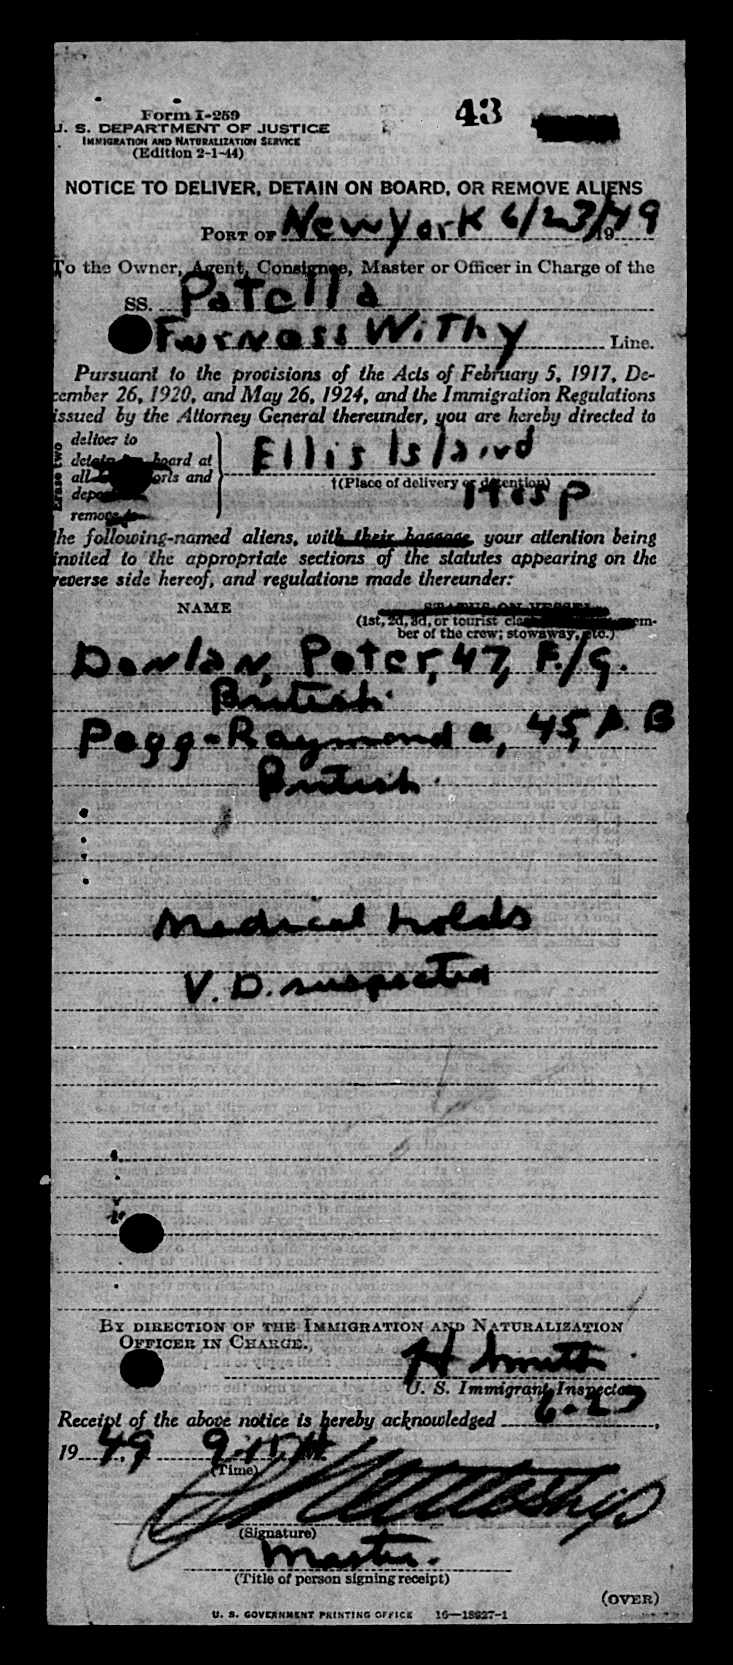 43
Form I-259
U. S. DEPARTMENT OF JUSTICE
IMMIGRATION AND NATURALIZATION SERVICE
(Edition 2-1-44)
NOTICE TO DELIVER, DETAIN ON BOARD, OR REMOVE ALIENS
PORT OF New York 6/23/1949
To the Owner, Agent, Consignee, Master or Officer in Charge of the
SS. Patella
Furness Withy Line.
Pursuant to the provisions of the Acts of February 5, 1917, De-
cember 26, 1920, and May 26, 1924, and the Immigration Regulations
issued by the Attorney General thereunder, you are hereby directed to
Erase two
deliver to
detain board at
all ports and
remove
Ellis Island
†(Place of delivery or detention)
the following-named aliens, with their baggage, your attention being
invited to the appropriate sections of the statutes appearing on the
reverse side hereof, and regulations made thereunder:
NAME
STATUS ON VESSEL
(1st, 2d, 3d, or tourist class mem-
ber of the crew; stowaway, etc.)
Donlan, Peter, 47, F/g.
British.
Pegg-Raymond a, 45, A B
British.
Medical holds
V. D. suspected
BY DIRECTION OF THE IMMIGRATION AND NATURALIZATION
OFFICER IN CHARGE.
H Smith
U. S. Immigrant Inspector
Receipt of the above notice is hereby acknowledged 6-23,
1949, 9:15
(Time)
(Signature)
Master.
(Title of person signing receipt)
(OVER)
U. S. GOVERNMENT PRINTING OFFICE 16—18627-1